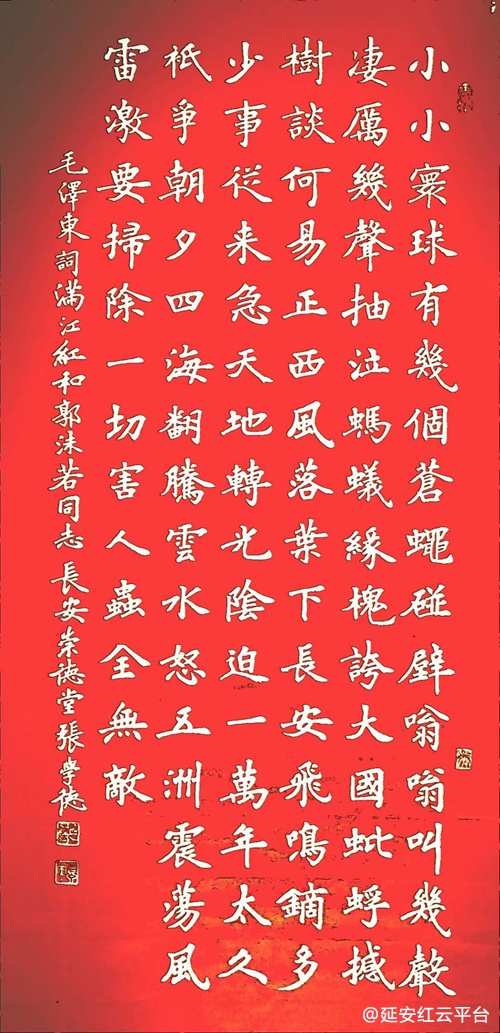 小小寰球有幾個蒼蠅碰壁嗡嗡叫幾聲
凄厲幾聲抽泣螞蟻緣槐誇大國蚍蜉撼
樹談何易正西風落葉下長安飛鳴鏑多
少事從来急天地轉光陰迫一萬年太久
祇爭朝夕四海翻騰雲水怒五洲震蕩風
雷激要掃除一切害人蟲全無敵
毛澤東詞滿江紅和郭沫若同志 長安崇德堂張學德
@延安红云平台